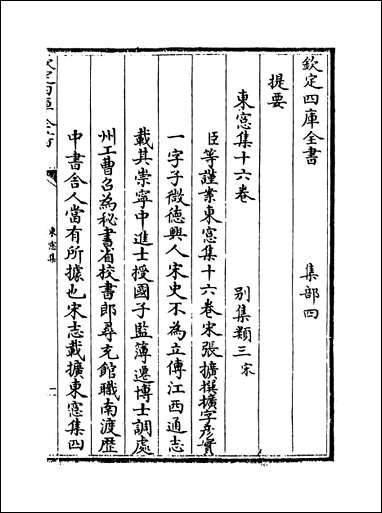 欽定四庫全書　集部四
提要
東窓集十六卷　别集類三宋
臣等謹案東窓集十六卷宋張擴撰擴字彦實
一字子微徳興人宋史不為立傳江西通志
載其崇寧中進士授國子監簿遷博士調處
州工曹召為秘書省校書郎尋充館職南渡歴
中書舎人當有所據也宋志載擴東窓集四
欽定四庫全書
東窓集